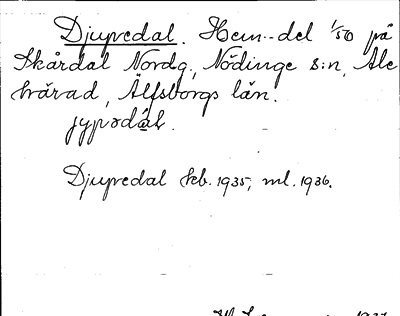 Djupedal. Hem.-del 1/50 på
Skårdal Nordg., Nödinge s:n, Ale
härad, Älfsborgs län.
Djupedal kb. 1935, ml. 1936.